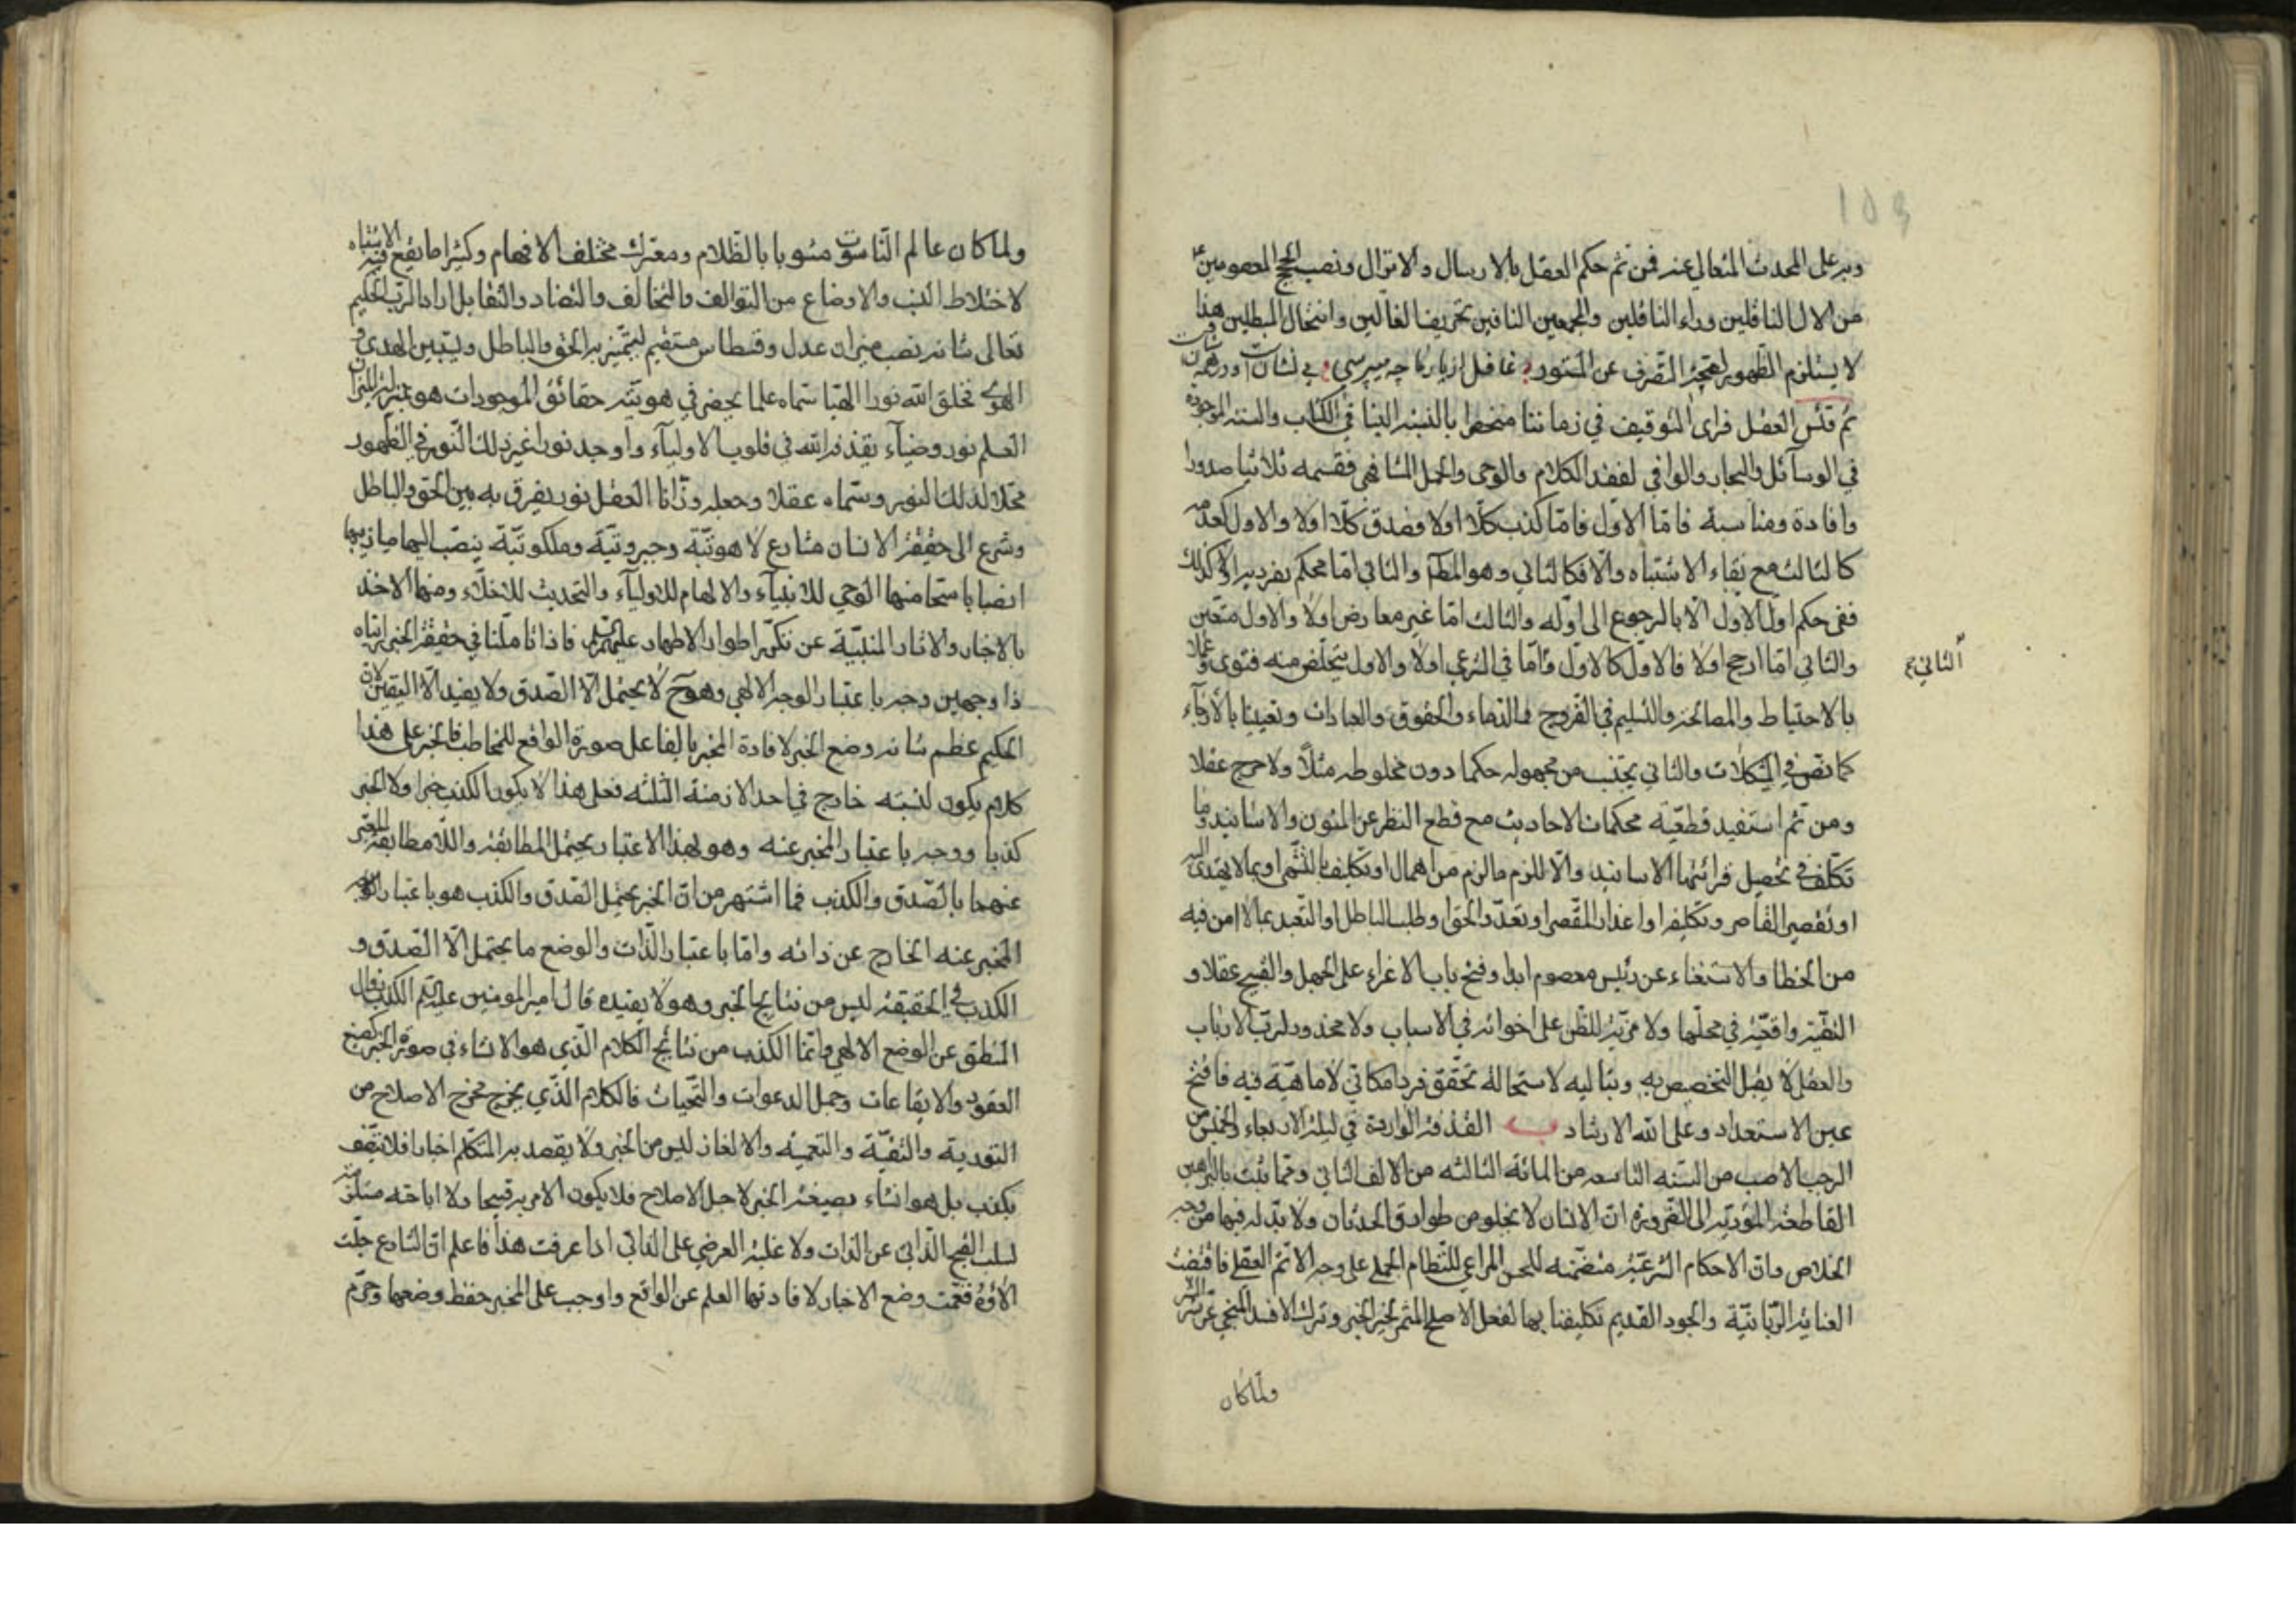 وبه على المحدث المتعالي عنه فمن ثم حكم العقل بالارسال والانزال ونصب الحجج المعصومين
من الال الناقلين وراء الناقلين والمجمعين النافين تحريف الغالين وانتحال المبطلين هذا
لا يستلزم الظهور التصرف عن المستور غافل از يار ما چه ميپرسي بي نشان
ثم فتش العقل فراى التوقيف في زماننا منحصرا بالنسبة الينا في الكتاب والسنة الموجودة
في الوسآئل والبحار والوافي لفقد الكلام والوحي والحمل المشافهي فقسمه ثلاثيا صدورا
وافادة ومناسبة فامّا الاول فامّا كذب كلّا اولا وصدق كلّا اولا والاول
كالثالث مع بقاء الاشتباه والا فكالثاني وهو والثاني امّا محكم
ففي حكم اول الاول الا بالرجوع الى اوله والثالث امّا غير معارض اولا والاول متعين
الثاني
والثاني امّا ارجح اولا فالاول كالاول وامّا في الشرعي اولا والاول يتخلّص منه فتوى وعملا
بالاحتياط والمصالحة والتسليم في الفروج والدماء والحقوق والعبادات وتعيينا بالأرجاء
كما نصّ في المشكلات والثاني يجتنب من مجهوله حكما دون مخلوطه مثلاً ولا حرج عقلا
ومن ثم استفيد قطعيّة محكمات الاحاديث مع قطع النظر عن المتون والاسانيد وما
تكلّف في تحصيل قرائنها الاسانيد والا للزم ما لزم من اهمال او تكليف
او تقصير القاصر وتكليفه او اعذار المقصر او تعدّد الحق او طلب الباطل او التعبد بما لا امن فيه
من الخطا والاستغناء عن رئيس معصوم ابدا وفتح باب الاغراء على الجهل والقبيح عقلا و
التقيّة واقعيّة في محلّها ولا مزيّة للظن على اخواته في الاسباب ولا محذور لربّ الارباب
والعقل لا يقبل التخصيص به وبتاليه لاستحالة تحقق فرد امكاني لا ماهيّة فيه فافتح
عين الاستعداد وعلى الله الارشاد ب القذفة الواردة في ليلة الاربعاء والخميس من
الرجب الاصب من السنة التاسعة من المائة الثالثة من الالف الثاني وممّا يثبت بالبراهين
القاطعة المؤدّية الى الضرورة ان الانسان لا يخلو من طوارق الحدثان ولا بدّ له فيها من وجه
الخلاص وان الاحكام الشرعيّة متضمّنة للحسن المراعي للنظام الجملي على وجه الاتم العقلي فاقتضت
العناية الربّانيّة والجود القديم تكليفنا بها لفعل الاصلح المثمر لخير الخير وترك الافسد المنجي عن شر الشر
ولمّا كان
ولما كان عالم الناسوت مشوبا بالظلام ومعترك مختلف الافهام وكثيرا ما يقع فيه الاشتباه
لاختلاط النسب والاوضاع من التوالف والتخالف والتضاد والتقابل اراد الربّ الحكيم
تعالى شانه نصب ميزان عدل وقسطاس مستقيم ليتميّز به الحق والباطل ويتبين الهدى و
الهوى فخلق الله نورا الهيّا سماه علما يحضر في هويته حقائق الموجودات هو بمنزلة الميزان
العلم نور وضيآء يقذفه الله في قلوب الاوليآء واوجد نورا غير ذلك النور في الظهور
محلّا لذلك النور وسماه عقلا وجعله وزّانا العقل نور يفرق به بين الحق والباطل
وشرع الى حقيقة الانسان مشارع لاهوتيّة وجبروتيّة وملكوتيّة ينصبّ اليها
انصبابا سحّا منها الوحي للانبيآء والالهام للاوليآء والتحديث للاخلّاء ومنها الاخذ
بالاخبار والاثار المنبئة عن اطوار الاطهار عليهم السلم فاذا تاملنا في حقيقة الخبر
ذا وجهين وجه باعتبار الوجه الالهي وهو ح لا يحتمل الا الصدق ولا يفيد الا اليقين لان
الحكيم عظم شانه وضع الخبر لافادة المخبر بالفاعل صورة الواقع للمخاطب فالخبر على هذا
كلام يكون لنسبته خارج في احد الازمنة الثلثة فعلى هذا لا يكون الكذب خبرا ولا الخبر
كذبا ووجه باعتبار المخبر عنه وهو لهذا الاعتبار يحتمل المطابقة واللامطابقة المعبّر
عنهما بالصدق والكذب فما اشتهر من ان الخبر يحتمل الصدق والكذب هو باعتبار
المخبر عنه الخارج عن ذاته وامّا باعتبار الذات والوضع ما يحتمل الا الصدق و
الكذب في الحقيقة ليس من نتايج الخبر وهو لا يفيده قال امير المومنين عليه السلم الكذب زوال
المنطق عن الوضع الالهي وانّما الكذب من نتائج الكلام الّذي هو الانشاء في صورة الخبر كصيغ
العقود والايقاعات وجمل الدعوات والتحيات فالكلام الّذي يخرج مخرج الاصلاح من
التورية والتقيّة والتعمية والالغاز ليس من الخبر ولا يقصد به المتكلم اخبارا فلا يتّصف
بكذب بل هو انشاء بصيغة الخبر لاجل الاصلاح فلا يكون الامر به قبيحا ولا اباحته مستلزمة
لسلب القبح الذاتي عن الذات ولا غلبة العرضي على الذاتي اذا عرفت هذا فاعلم ان الشارع جلت
الاؤه وضع الاخبار لافادتها العلم عن الواقع واوجب على المخبر حفظ وضعها وحرّم